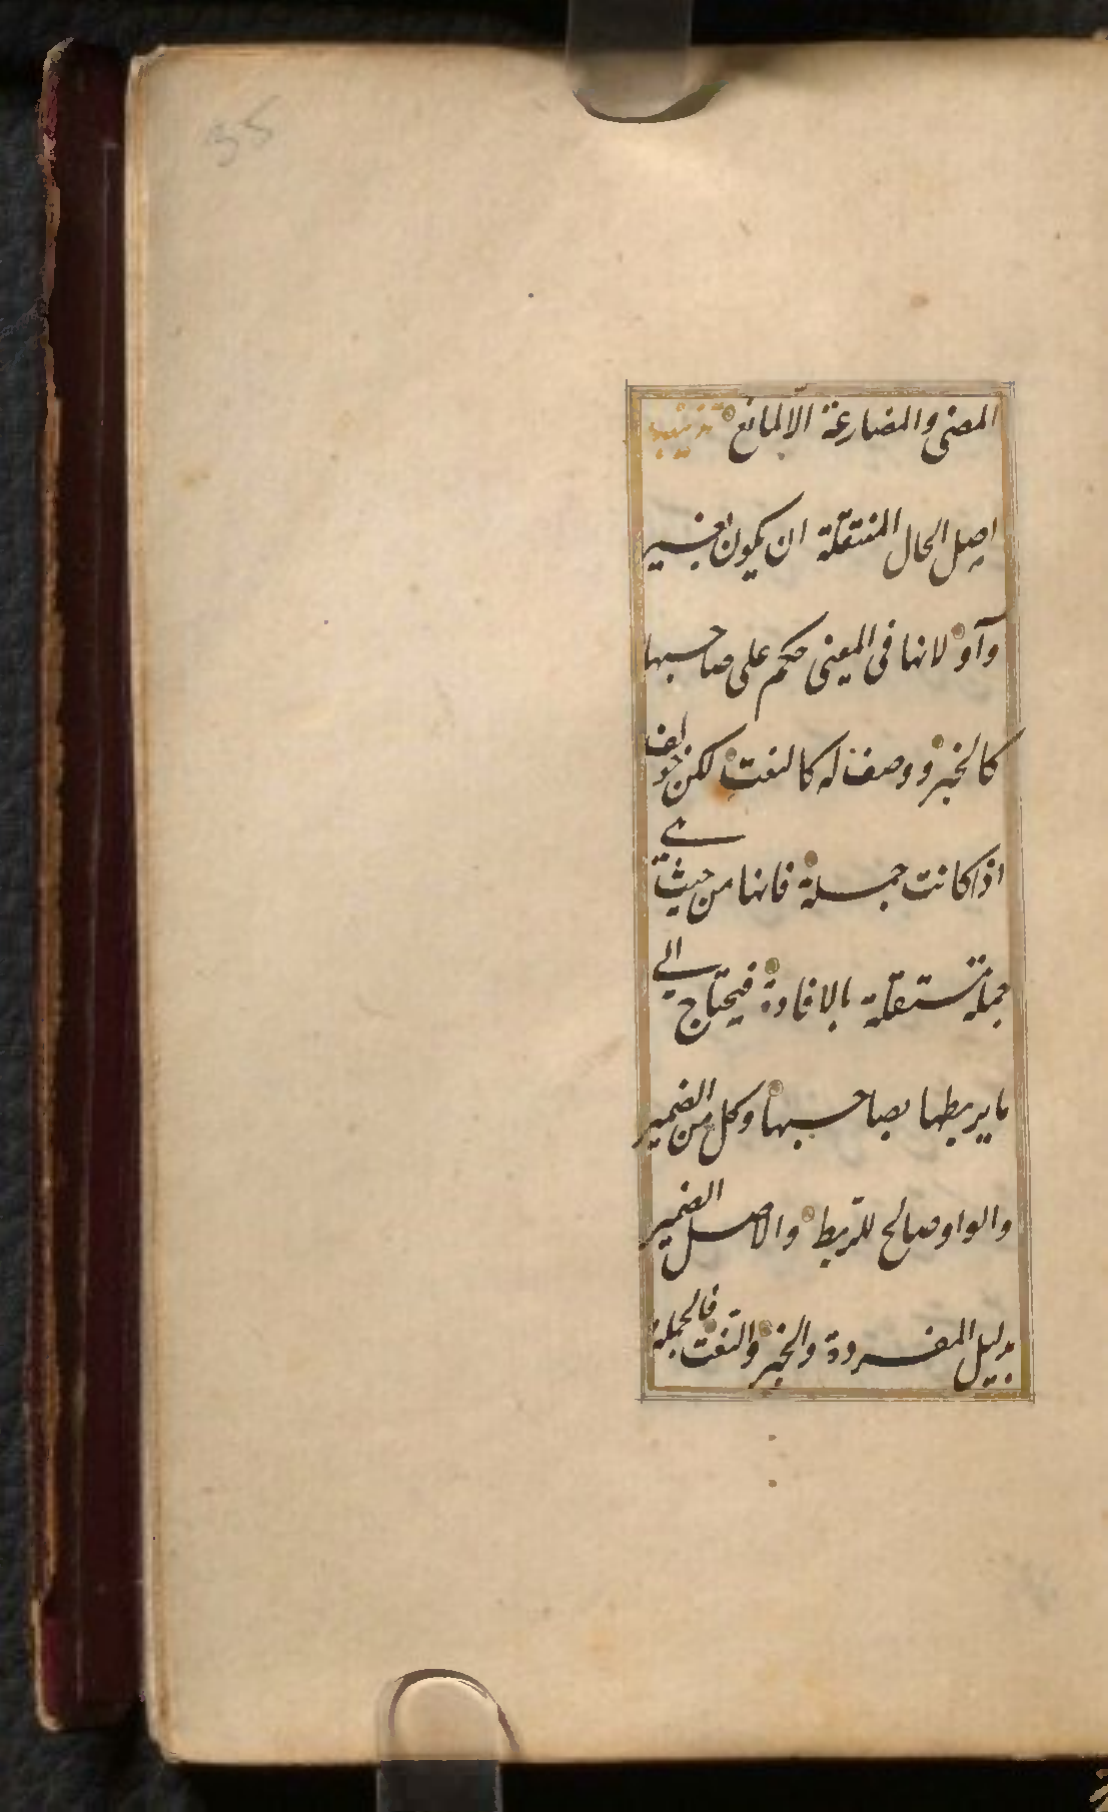 35
المضى والمضارعة الا لمانع تذنيب
اصل الحال المنتقلة ان يكون بغير
واو لانها فى المعنى حكم على صاحبها
كالخبر و وصف له كالنعت لكن خولف
اذا كانت جملة فانها من حيث هي
جملة مستقلة بالافادة فيحتاج الي
ما يربطها بصاحبها وكل من الضمير
والواو صالح للربط والاصل الضمير
بدليل المفردة والخبر والنعت فالجملة